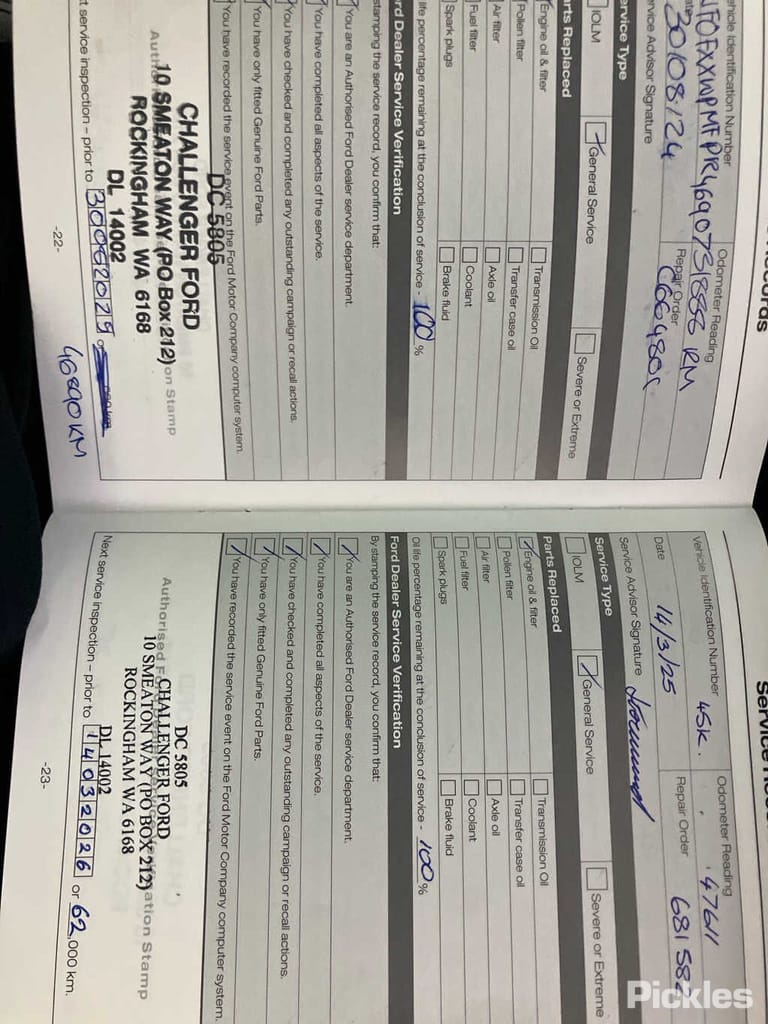 Records
Vehicle Identification Number
Odometer Reading
31886 KM
30/08/24
Repair Order
Service Advisor Signature
Service Type
IOLM
General Service
Severe or Extreme
Parts Replaced
Engine oil & filter
Transmission Oil
Pollen filter
Transfer case oil
Air filter
Axle oil
Fuel filter
Coolant
Spark plugs
Brake fluid
life percentage remaining at the conclusion of service - 100 %
Ford Dealer Service Verification
stamping the service record, you confirm that:
You are an Authorised Ford Dealer service department.
You have completed all aspects of the service.
You have checked and completed any outstanding campaign or recall actions.
You have only fitted Genuine Ford Parts.
You have recorded the service event on the Ford Motor Company computer system.
DC 5805
CHALLENGER FORD
10 SMEATON WAY (PO Box 212)
ROCKINGHAM WA 6168
DL 14002
on Stamp
service inspection – prior to 30082025 or
46890 KM
-22-
Service
Vehicle Identification Number
45K.
Odometer Reading
47611
Date
14/3/25
Repair Order
68158
Service Advisor Signature
Service Type
IOLM
General Service
Severe or Extreme
Parts Replaced
Engine oil & filter
Transmission Oil
Pollen filter
Transfer case oil
Air filter
Axle oil
Fuel filter
Coolant
Spark plugs
Brake fluid
Oil life percentage remaining at the conclusion of service - 100 %
Ford Dealer Service Verification
By stamping the service record, you confirm that:
You are an Authorised Ford Dealer service department.
You have completed all aspects of the service.
You have checked and completed any outstanding campaign or recall actions.
You have only fitted Genuine Ford Parts.
You have recorded the service event on the Ford Motor Company computer system.
DC 5805
CHALLENGER FORD
10 SMEATON WAY (PO BOX 212)
ROCKINGHAM WA 6168
DL 14002
Authorised
ation Stamp
Next service inspection – prior to 14032026 or 62,000 km.
-23-
Pickles